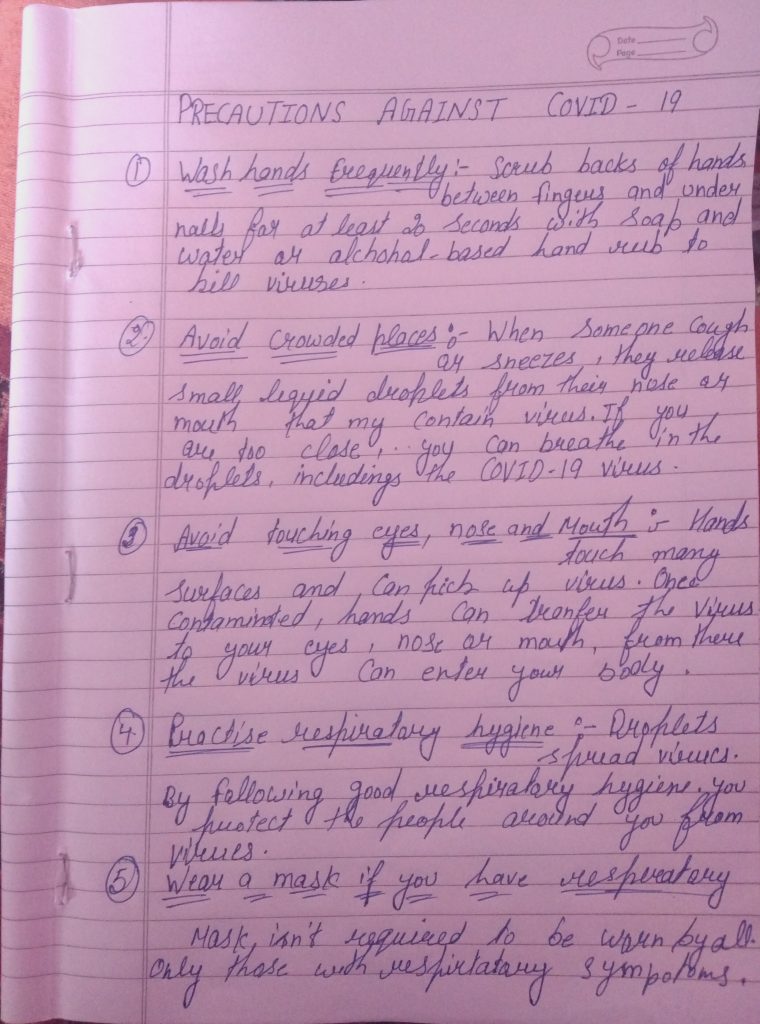 Date
Page
PRECAUTIONS AGAINST COVID - 19
① Wash hands frequently :- Scrub backs of hands
between fingers and under
nalls for at least 20 seconds with soap and
water or alchohal-based hand rub to
kill viruses.
② Avoid Crowded places :- When someone cough
or sneezes, they release
small liquid droplets from their nose or
mouth that my contain virus. If you
are too close, you can breathe in the
droplets, includings the COVID-19 virus.
③ Avoid touching eyes, nose and Mouth :- Hands
touch many
surfaces and can pick up virus. Once
contaminated, hands can tranfer the virus
to your eyes, nose or mouth, from there
the virus can enter your body.
④ Practise respiratory hygiene :- Droplets
spread virues.
By following good respiratory hygiene, you
protect the people around you from
virues.
⑤ Wear a mask if you have respiratory
Mask, isn't required to be worn by all.
Only those with respirtatory sympotoms.